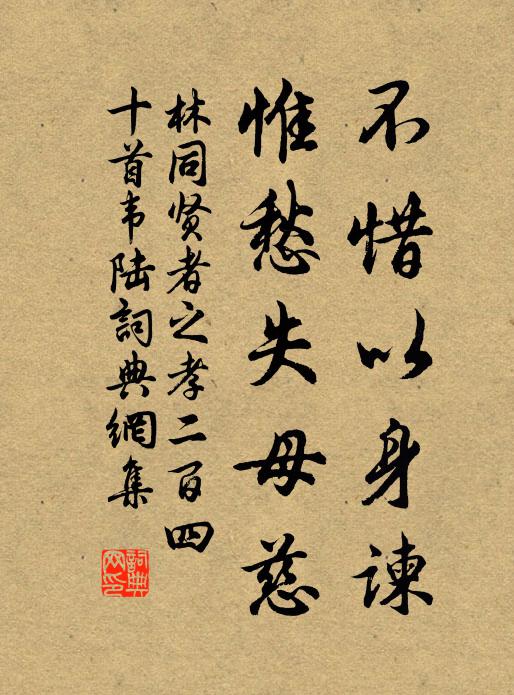 不惜以身諫
惟愁失母慈
林同贤者之孝二百四
十首韦陆詞典網集
詞典
网印